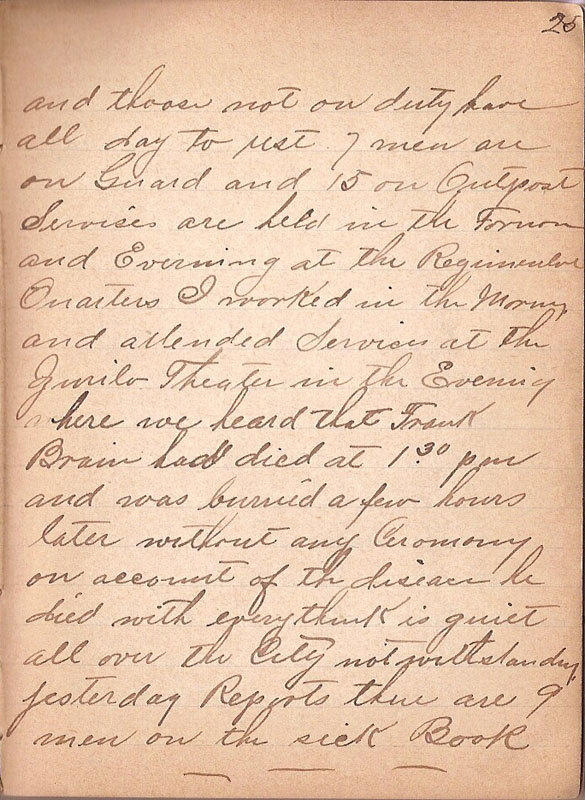 25
and those not on duty have
all day to rest 7 men are
on Guard and 15 on Outpost
Services are held in the Fornon
and Everning at the Regimental
Quarters I worked in the Morning
and attended Services at the
Theater in the Evenig
here we heard that Frank
Brain had died at 1.30 pm
and was burried a few hours
later without any Ceromony
on account of the disease he
died with everythink is quiet
all over the City not withstanding
yesterday Reports there are 9
men on the sick Book